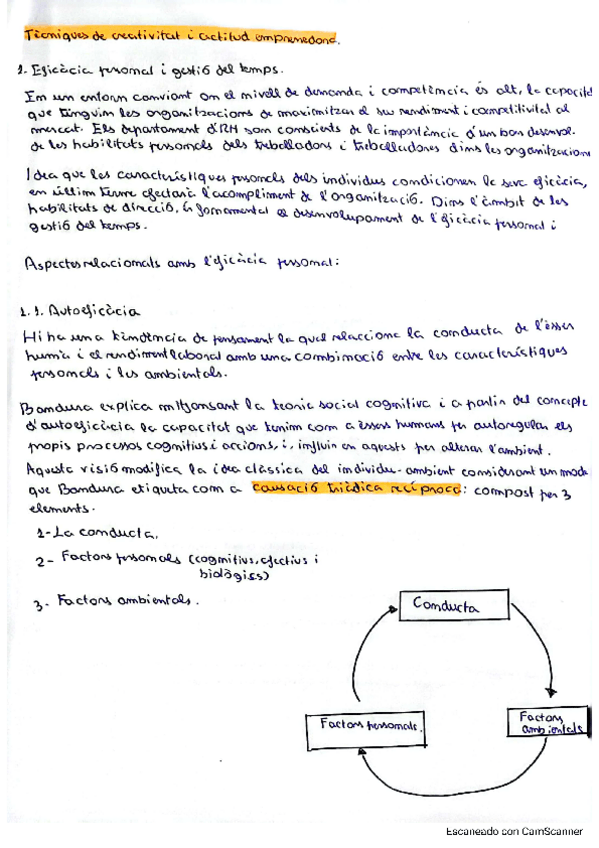 Tècniques de creativitat i actitud emprenedora.
1. Eficàcia personal i gestió del temps.
En un entorn canviant on el nivell de demanda i competència és alt, la capacitat
que tinguin les organitzacions de maximitzar el seu rendiment i competitivitat al
mercat. Els departament d'RH som conscients de la importància d'un bon desenvol.
de les habilitats personals dels treballadors i treballadores dins les organitzacions
Idea que les característiques personals dels individus condicionen la seva eficàcia,
en últim terme afectarà l'acompliment de l'organització. Dins l'àmbit de les
habilitats de direcció, és fonamental el desenvolupament de l'eficàcia personal i
gestió del temps.
Aspectes relacionals amb l'eficàcia personal:
1.1. Autoeficàcia
Hi ha una tendència de pensament la qual relacciona la conducta de l'ésser
humà i el rendiment laboral amb una combinació entre les característiques
personals i les ambientals.
Bandura explica mitjansant la teoria social cognitiva i a partir del concepte
d'autoeficàcia la capacitat que tenim com a éssers humans per autoregular els
propis processos cognitius i accions, i, influir en aquests per alterar l'ambient.
Aquesta visió modifica la idea clàssica del individu-ambient considerant un model
que Bandura etiqueta com a causació triàdica recíproca: compost per 3
elements.
1-La conducta.
2- Factors personals (cognitius, afectius i
biològics)
3- Factors ambientals.
Conducta
Factors personals.
Factors
ambientals
Escaneado con CamScanner